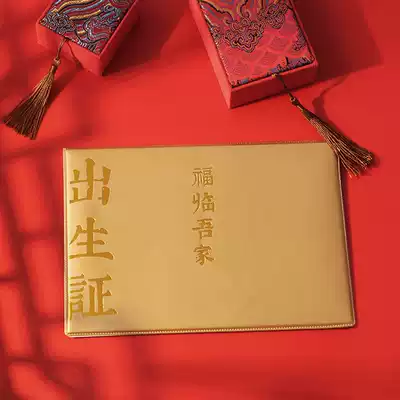 出生証
福临吾家